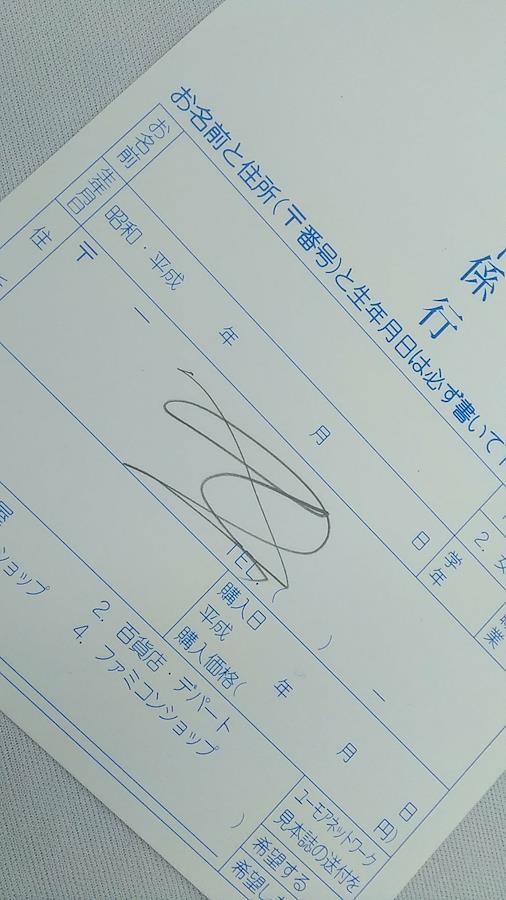 係 行
お名前と住所(〒番号)と生年月日は必ず書いて
お名前
生年月日
昭和・平成 年 月 日
学年
2. 女
業
住
〒
TEL. ( )
購入日
平成 年 月 日
購入価格( 円)
ショップ
2. 百貨店・デパート
4. ファミコンショップ
)
ユーモアネットワーク
見本誌の送付を
希望する
希望し